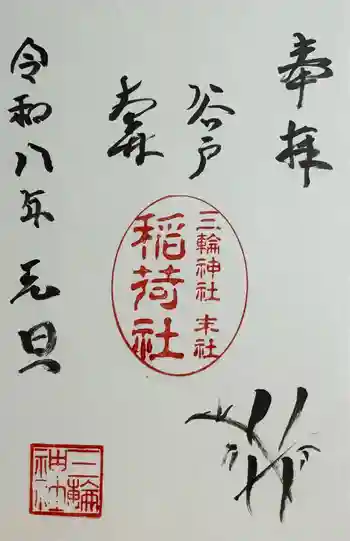 奉拝
谷戸
三輪神社 末社
稲荷社
令和八年 元旦
三輪
神社